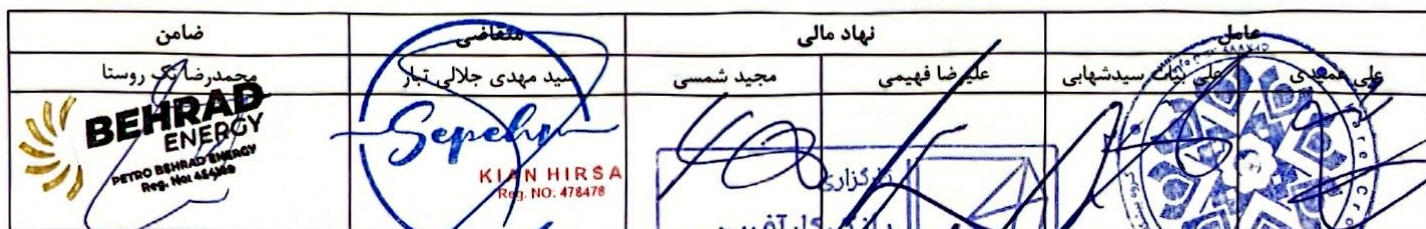 عامل نهاد مالی متقاضی ضامن
علی عمیدی علی بیات سیدشهابی علیرضا فهیمی مجید شمسی سید مهدی جلالی تبار محمدرضا تک روستا
BEHRAD
ENERGY
PETRO BEHRAD ENERGY
Reg. No:
Sepehr
KIAN HIRSA
Reg. NO: 478478
کارگزاری